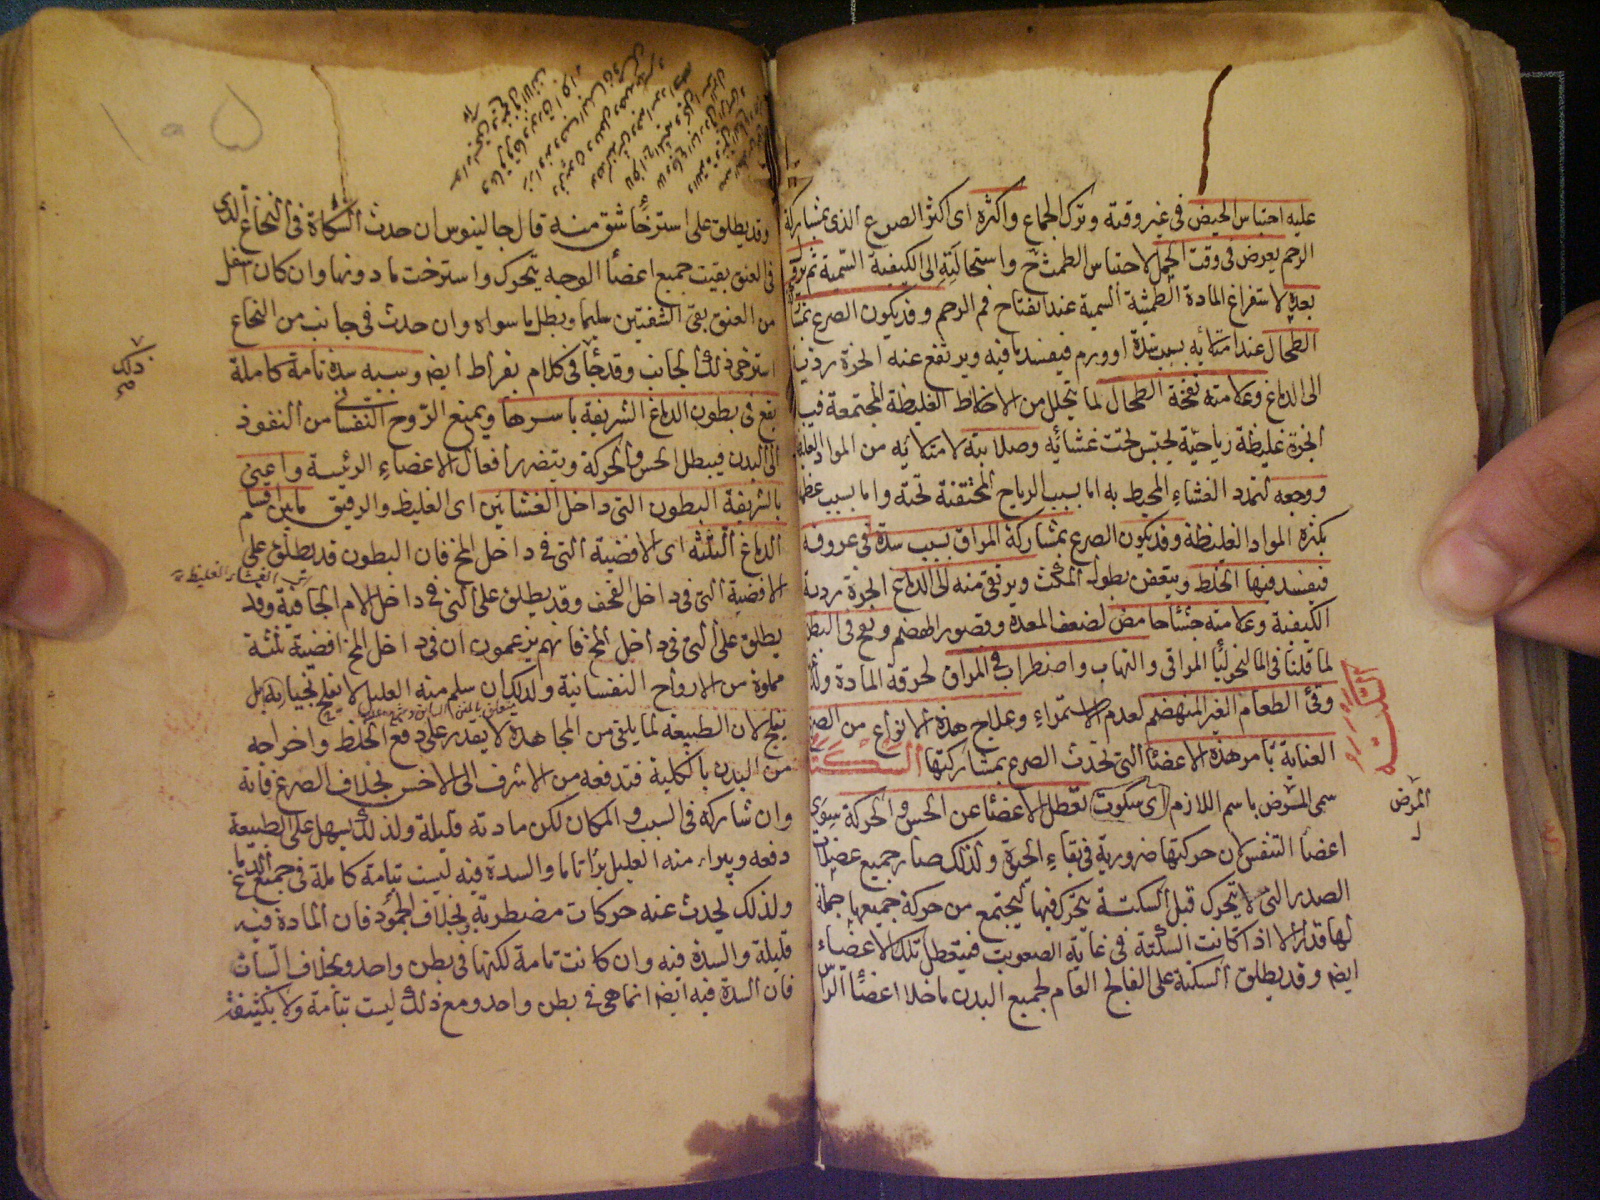 عليه احتباس الحيض في غير وقته وترك الجماع واكثره اى اكثر الصرع الذى بمشاركة
الرحم يعرض فى وقت الحمل لاحتباس الطمث ح واستحالته الى الكيفية السمية ثم يزول
بعده لاستفراغ المادة الطمثية السمية عند انفتاح فم الرحم وقد يكون الصرع بمشاركة
الطحال عند امتلائه بسبب سدة او ورم فيفسد ما فيه ويرتفع عنه ابخرة ردية
الى الدماغ وعلامته نفخة الطحال لما يتحلل من الاخلاط الغليظة المجتمعة فيه
ابخرة غليظة رياحية يحتبس تحت غشائه وصلابته لامتلائه من المواد الغليظة
ووجعه لتمدد الغشاء المحيط به اما بسبب الرياح المحتقنة تحته واما بسبب عظمه
بكثرة المواد الغليظة وقد يكون الصرع بمشاركة المراق بسبب سدة فى عروقه
فيفسد فيها الخلط ويتعفن بطول المكث ويرتقى منه الى الدماغ ابخرة ردية
الكيفية وعلامته جشاء حامض لضعف المعدة وقصور الهضم ونفخ فى البطن
لما قلنا فى المالنخوليا المراقى والتهاب واضطراب فى المراق لحرقة المادة
وقئ الطعام الغير المنهضم لعدم الاستمراء وعلاج هذه الانواع من الصرع
العناية بامر هذه الاعضاء التى تحدث الصرع بمشاركتها السكتة
سمى المرض باسم اللازم اى سكوت تعطل الاعضاء عن الحس والحركة سوى
اعضاء التنفس لان حركتها ضرورية فى بقاء الحيوة ولذلك صار جميع عضلات
الصدر التى لا يتحرك قبل السكتة يتحرك فيها ليجتمع من حركة جميعها جملة
لها قدر الا اذا كانت السكتة فى غاية الصعوبة فيتعطل تلك الاعضاء
ايضا وقد يطلق السكتة على الفالج العام لجميع البدن ما خلا اعضاء الراس
السكتة
المرض
وقد يطلق على استرخاء شق منه قال جالينوس ان حدث السكتة فى النخاع الذى
فى العنق بقيت جميع اعضاء الوجه يتحرك واسترخت ما دونها وان كان اسفل
من العنق بقى الشفتين سليما وبطل ما سواه وان حدث فى جانب من النخاع
استرخى ذلك الجانب وقد جاء فى كلام بقراط ايضا وسببه سدة تامة كاملة
يقع فى بطون الدماغ الشريفة باسرها ويمنع الروح النفسانى من النفوذ
الى البدن فيبطل الحس والحركة ويتضرر افعال الاعضاء الرئيسة واعنى
بالشريفة البطون التى داخل الغشائين اى الغليظ والرقيق ما بين اقسام
الدماغ الثلثة اى الافضية التى فى داخل المخ فان البطون قد يطلق على
الافضية التى فى داخل القحف وقد يطلق على التى فى داخل الام الجافية وقد
يطلق على التى فى داخل المخ فانهم يزعمون ان فى داخل المخ افضية ثلثة
مملوة من الارواح النفسانية ولذلك ان سلم منه العليل لا يفلج نجيا به بل
يفلج لان الطبيعة لما يلقى من المجاهدة لا يقدر على دفع الخلط واخراجه
من البدن بالكلية فتدفعه من الاشرف الى الاخس بخلاف الصرع فانه
وان شاركه فى السبب والمكان لكن مادته قليلة ولذلك يسهل على الطبيعة
دفعه ويبراء منه العليل برأ تاما والسدة فيه ليست بتامة كاملة فى جميع الدماغ
ولذلك يحدث عنه حركات مضطربة وبخلاف الجمود فان المادة فيه
قليلة والسدة فيه وان كانت تامة لكنها فى بطن واحد وبخلاف السبات
فان السدة فيه ايضا انما هى فى بطن واحد ومع ذلك ليست بتامة ولا بكثيفة
ذلك